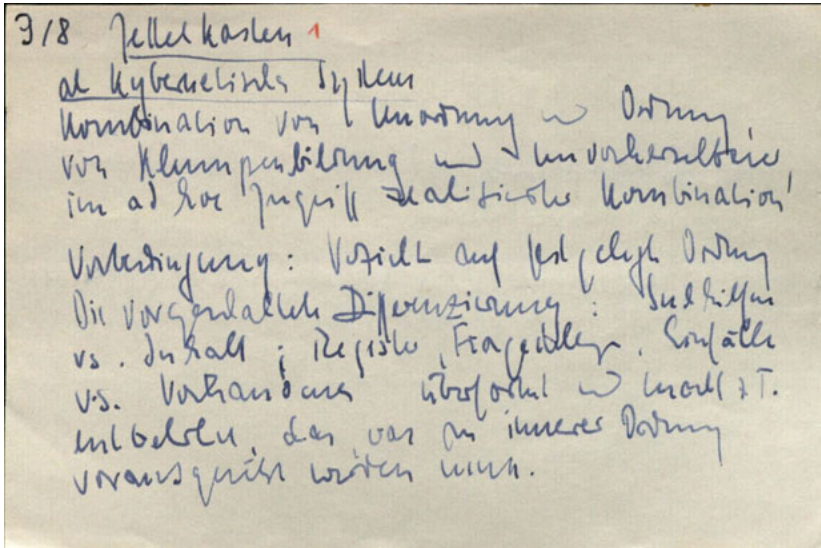 9/8 Zettelkasten 1
als kybernetisches System
Kombination von Unordnung und Ordnung,
von Klumpenbildung und unvorhersehbarer,
im ad hoc Zugriff realisierter Kombination.
Vorbedingung: Verzicht auf festgelegte Ordnung.
Die vorgeschaltete Differenzierung: Suchhilfen
vs. Inhalt; Register, Fragestellungen, Einfälle
vs. Vorhandenes überformt und macht z.T.
entbehrlich, das, was an innerer Ordnung
vorausgesetzt werden muß.